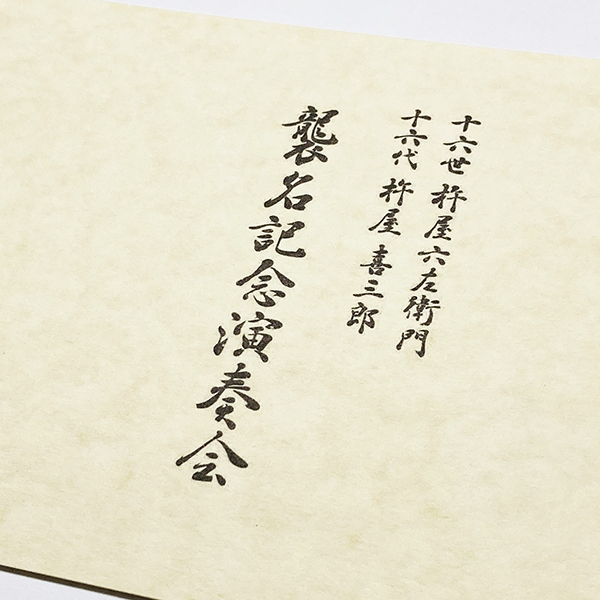 十六世 杵屋六左衛門
十六代 杵屋喜三郎
襲名記念演奏会